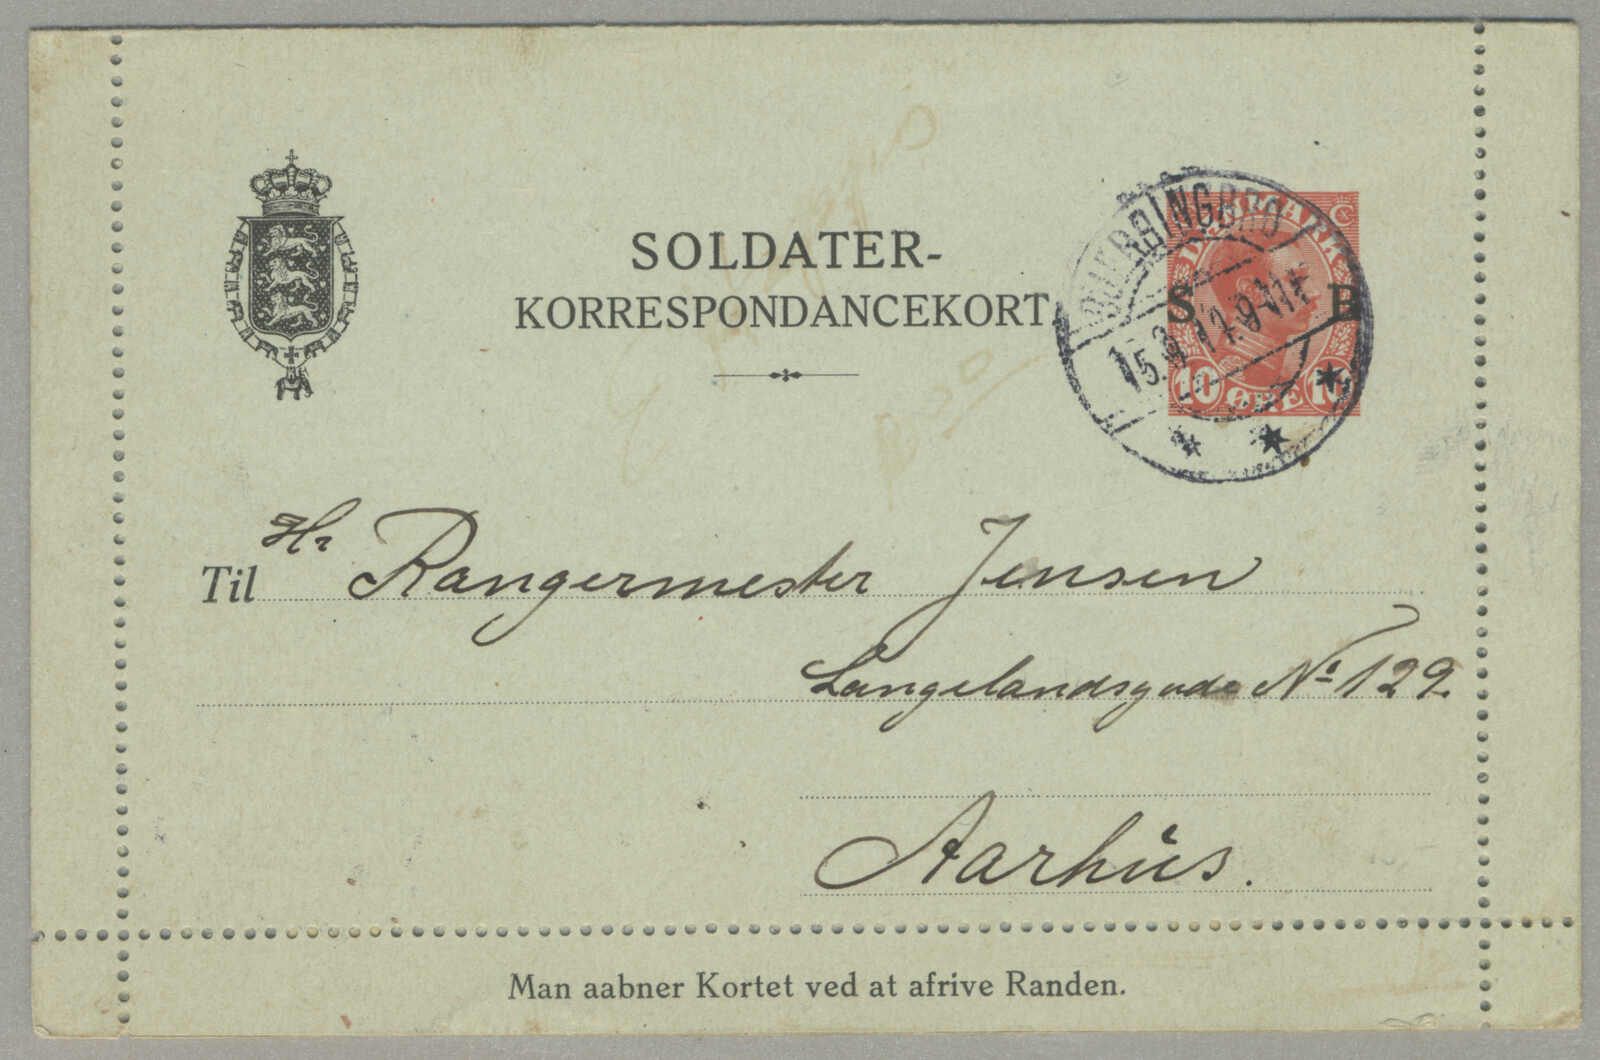 SOLDATER-
KORRESPONDANCEKORT.
BJERRINGBRO
DANMARK
S B
10 ØRE 10
Til Hr Rangermester Jensen
Langelandsgade No 129.
Aarhus.
Man aabner Kortet ved at afrive Randen.